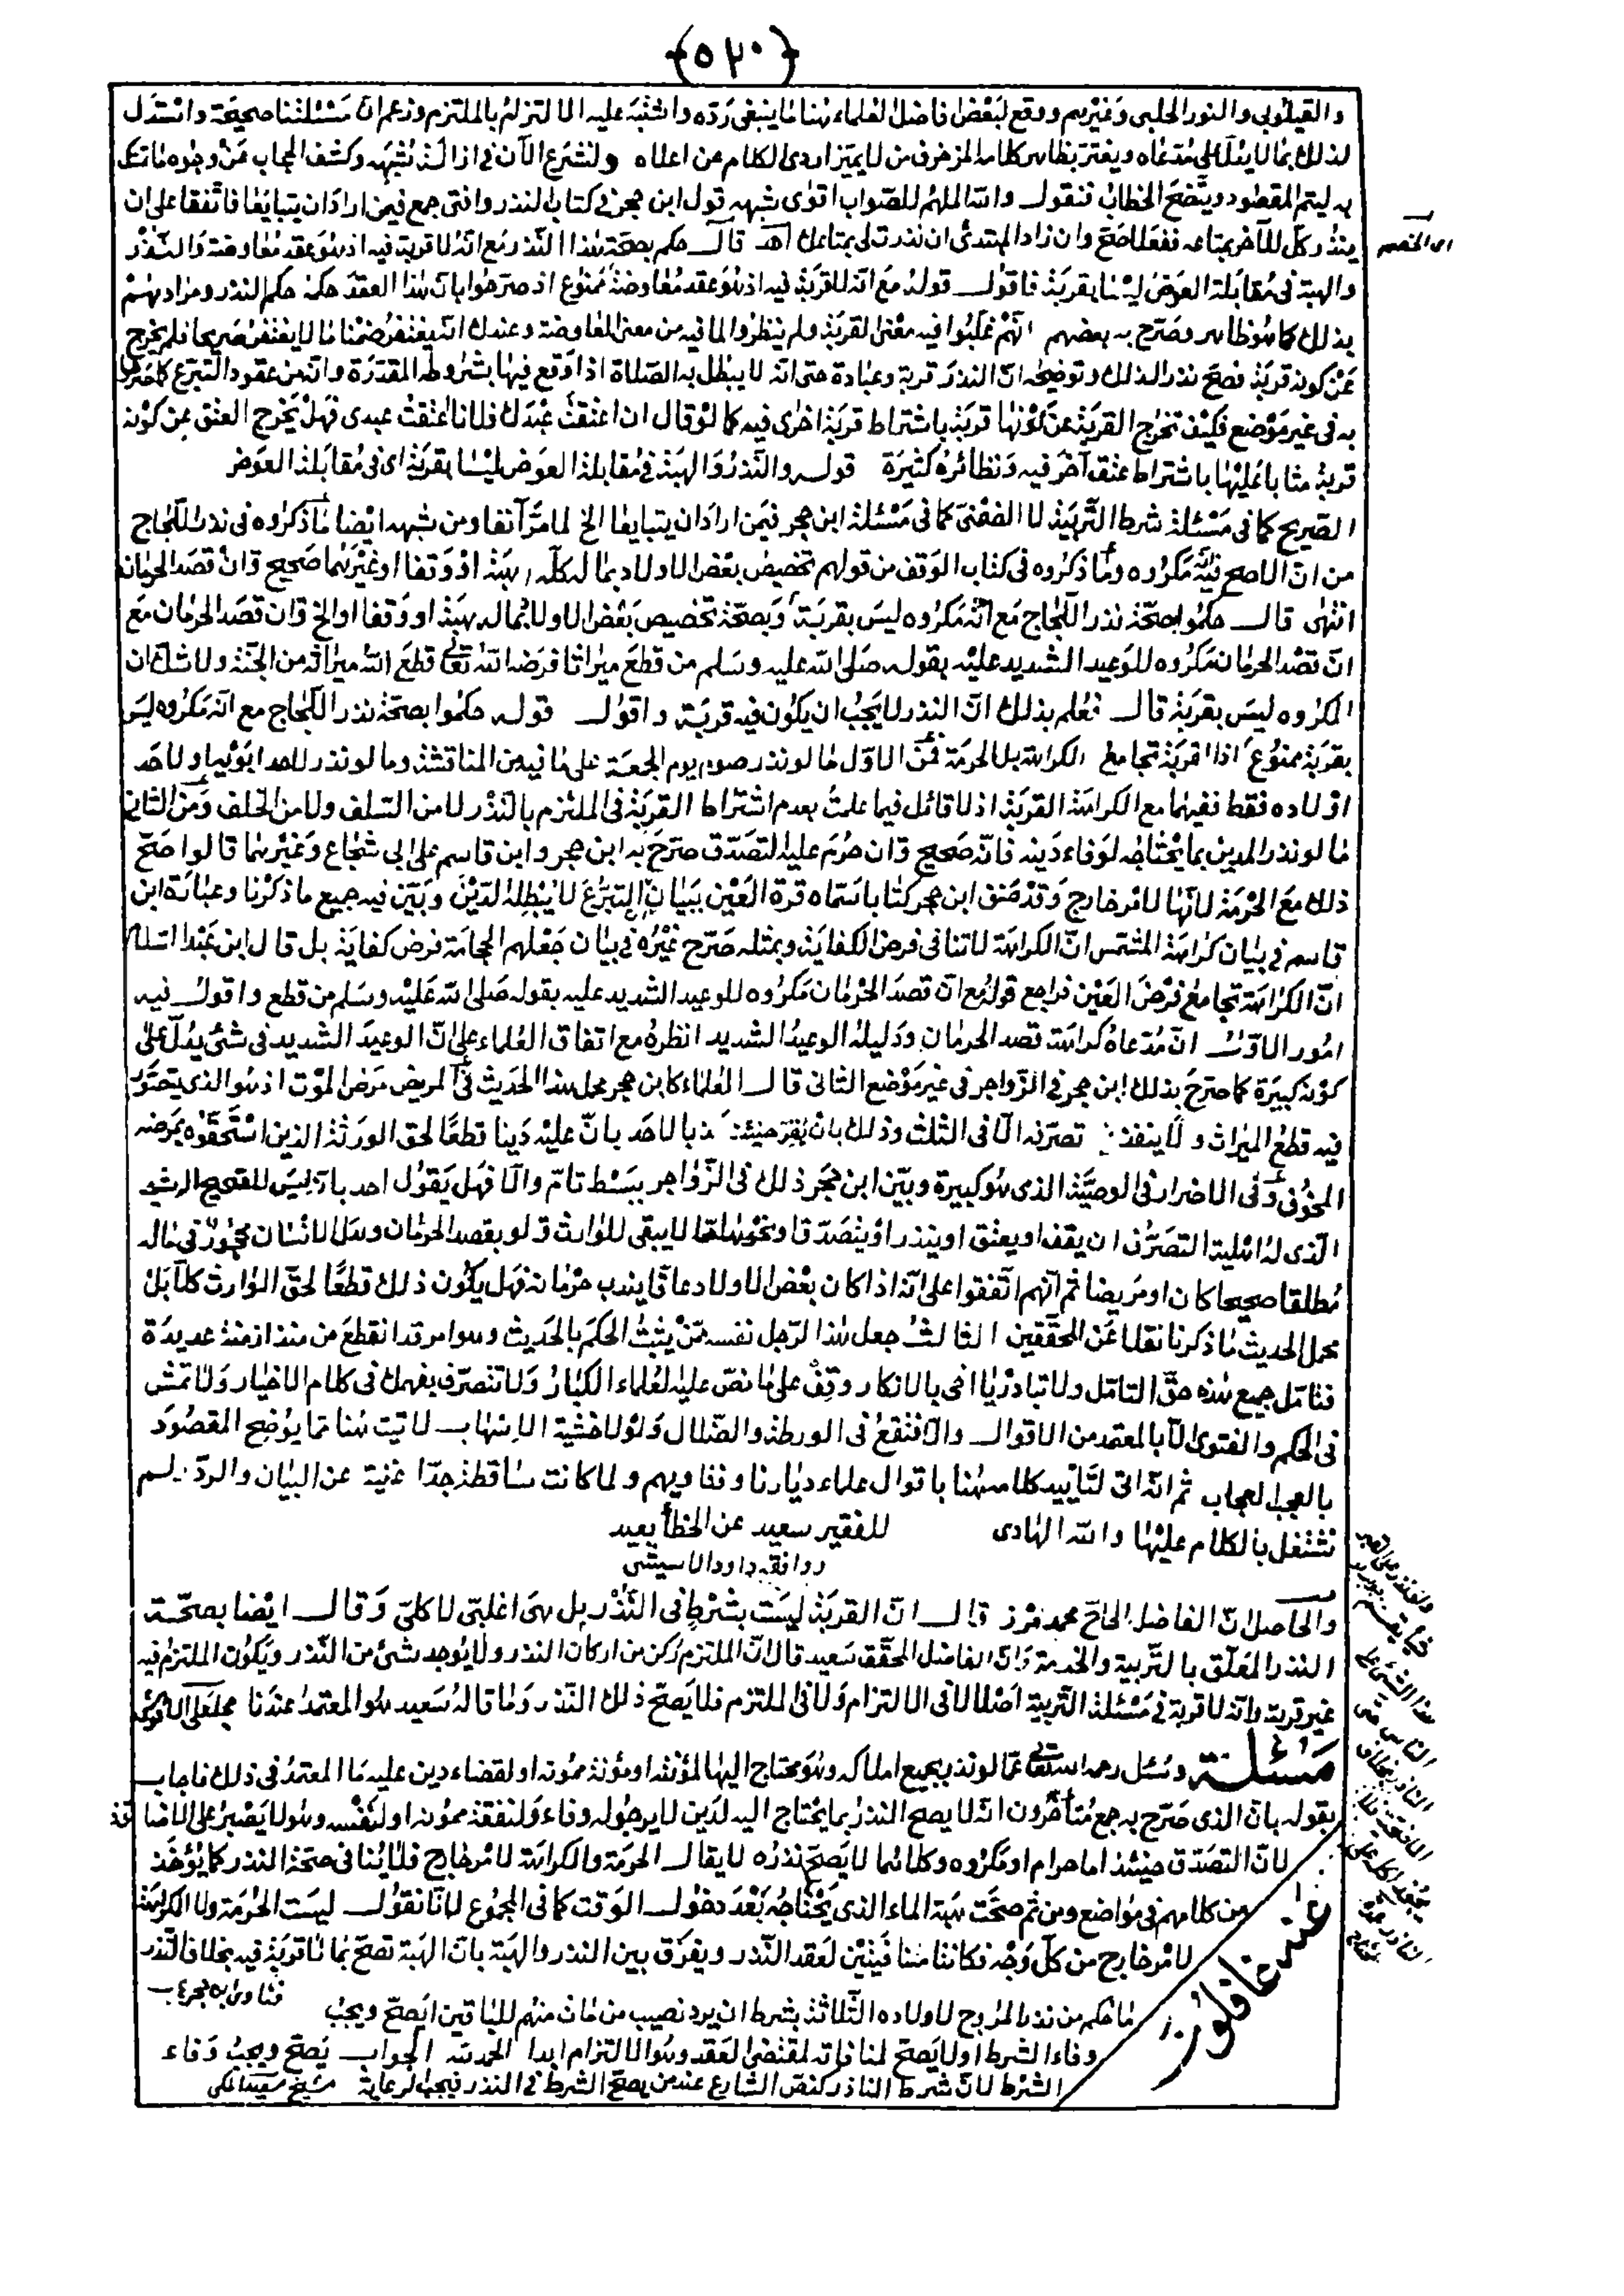 ﴿٥٢٠﴾
والقيلوبي والنور الحلبي وغيرهم ووقع لبعض فاضل العلماء هنا ما ينبغى رده واشتبه عليه الالتزام بالملتزم وزعم ان مسئلتنا صحيحة واستدل
لذلك بما لا يدل على مدعاه ويغتر بظاهر كلامه المزخرف من لا يميز اردى الكلام من اعلاه ولنشرع الآن فى ازالة شبهه وكشف الحجاب عن وجوه ما تمسك
به ليتم المقصود ويتضح الخطاب فنقول والله الملهم للصواب اقوى شبهه قول ابن حجر فى كتاب النذر وافتى جمع فيمن اراد ان يتبايعا فاتفقا على ان
ينذر كل للآخر بمتاعه ففعلا صح وان زاد المبتدئ ان نذرت لى بمتاعك اهـ قال حكم بصحة هذا النذر مع انه لا قربة فيه اذ هو عقد معاوضة والنذر
والهبة فى مقابلة العوض ليسا بقربة فاقول قوله مع انه لا قربة فيه اذ هو عقد معاوضة ممنوع اذ صرحوا بان هذا العقد حكمه حكم النذر ومرادهم
بذلك كما هو ظاهر وصرح به بعضهم انهم غلبوا فيه معنى القربة ولم ينظروا لما فيه من معنى المعاوضة وعندك انه يغتفر ضمنا ما لا يغتفر صريحا فلم يخرج
عن كونه قربة فصح نذر الذلك وتوضيحه ان النذر قربة وعبادة حتى انه لا يبطل به الصلاة اذا وقع فيها بشروطه المقدرة وانه من عقود التبرع كما صرحوا
به فى غير موضع فكيف تخرج القربة عن كونها قربة باشتراط قربة اخرى فيه كما لو قال ان اعتقت عبدك فلانا اعتقت عبدى فهل يخرج العتق عن كونه
قربة مثابا عليها باشتراط عتق آخر فيه ونظائره كثيرة قوله والنذر والهبة فى مقابلة العوض ليسا بقربة اى فى مقابلة العوض
الصريح كما فى مسئلة شرط التربية لا الضمنى كما فى مسئلة ابن حجر فيمن اراد ان يتبايعا الخ لما مر آنفا ومن شبهه ايضا ما ذكروه فى نذر اللجاج
من ان الاصح فيه انه مكروه وما ذكروه فى كتاب الوقف من قولهم تخصيص بعض الاولاد بماله كله هبة او وقفا او غيرهما صحيح وان قصد الحرمان
انتهى قال حكموا بصحة نذر اللجاج مع انه مكروه ليس بقربة وبصحة تخصيص بعض الاولاد بماله هبة او وقفا او الخ وان قصد الحرمان مع
ان قصد الحرمان مكروه للوعيد الشديد عليه بقوله صلى الله عليه وسلم من قطع ميراثا فرضه الله تعالى قطع الله ميراثه من الجنة ولا شك ان
المكروه ليس بقربة قال فعلم بذلك ان النذر لا يجب ان يكون فيه قربة واقول قوله حكموا بصحة نذر اللجاج مع انه مكروه ليس
بقربة ممنوع اذ القربة تجامع الكراهة بل الحرمة فمن الاول ما لو نذر صوم يوم الجمعة على ما فيه من المناقشة وما لو نذر لاحد ابويه او لاحد
اولاده فقط ففيهما مع الكراهة القربة اذ لا قائل فيما علمت بعدم اشتراط القربة فى الملتزم بالنذر لا من السلف ولا من الخلف ومن الثانى
ما لو نذر المدين بما يحتاجه لوفاء دينه فانه صحيح وان حرم عليه التصدق صرح به ابن حجر وابن قاسم على ابى شجاع وغيرهما قالوا صح
ذلك مع الحرمة لانها لامر خارج وقد صنف ابن حجر كتابا سماه قرة العين ببيان ان التبرع لا يبطله الدين وبين فيه جميع ما ذكرنا وعبارة ابن
قاسم فى بيان كراهة المشمس ان الكراهة لا تنافى فرض الكفاية وبمثله صرح غيره فى بيان جعلهم الحجامة فرض كفاية بل قال ابن عبد السلام
ان الكراهة تجامع فرض العين فراجع قوله مع ان قصد الحرمان مكروه للوعيد الشديد عليه بقوله صلى الله عليه وسلم من قطع واقول فيه
امور الاول ان مدعاه كراهة قصد الحرمان ودليله الوعيد الشديد انظره مع اتفاق العلماء على ان الوعيد الشديد فى شئ يدل على
كونه كبيرة كما صرح بذلك ابن حجر فى الزواجر فى غير موضع الثانى قال العلماء كابن حجر محل هذا الحديث فى المريض مرض الموت اذ هو الذى يتصور
فيه قطع الميراث ولا ينفذ تصرفه الا فى الثلث وذلك بان يقر حينئذ كذبا لاحد بان عليه دينا قطعا لحق الورثة الذين استحقوه بمرضه
المخوف وفى الاضرار فى الوصية الذى هو كبيرة وبين ابن حجر ذلك فى الزواجر ببسط تام والا فهل يقول احد بانه ليس للصحيح الرشيد
الذى له اهلية التصرف ان يقف او يعتق او ينذر او يتصدق او نحوها مما لا يبقى للوارث ولو بقصد الحرمان وهل الانسان محجور فى ماله
مطلقا صحيحا كان او مريضا ثم انهم اتفقوا على انه اذا كان بعض الاولاد عاقا يندب حرمانه فهل يكون ذلك قطعا لحق الوارث كلا بل
محل الحديث ما ذكرنا نقلا عن المحققين الثالث جعل هذا الرجل نفسه ممن يثبت الحكم بالحديث وهو امر قد انقطع من منذ ازمنة عديدة
فتامل جميع هذه حق التامل ولا تبادر يا اخى بالانكار وقف على ما نص عليه العلماء الكبار ولا تتصرف بفهمك فى كلام الاخيار ولا تمش
فى الحكم والفتوى الا بالمعتمد من الاقوال والا فتقع فى الورطة والضلال ولولا خشية الاسهاب لاتيت هنا مما يوضح المقصود
بالعجب العجاب ثم انه اتى لتأييد كلامه هنا باقوال علماء ديارنا وفتاويهم ولما كانت ساقطة جدا غنية عن البيان والرد لم
نشتغل بالكلام عليها والله الهادى للفقير سعيد عن الخطأ بعيد
ووافقه داود الاسيشى
والحاصل ان الفاضل الحاج محمد قال ان القربة ليست بشرط فى النذر بل هى اغلبى لا كلى وقال ايضا بصحة
النذر المعلق بالتربية والخدمة وان الفاضل المحقق سعيد قال ان الملتزم ركن من اركان النذر ولا يوجد شئ من النذر ويكون الملتزم فيه
غير قربة وانه لا قربة فى مسئلة التربية اصلا لا فى الالتزام ولا فى الملتزم فلا يصح ذلك النذر وما قاله سعيد هو المعتمد عندنا
مسئلة وسئل رحمه الله تعالى عما لو نذر بجميع املاكه وهو محتاج اليها لمؤنته او مؤنة ممونه او لقضاء دين عليه ما المعتمد فى ذلك فاجاب
بقوله بان الذى صرح به جمع متأخرون انه لا يصح النذر بما يحتاج اليه لدين لا يرجو له وفاء ولنفقة ممونه او لنفسه وهو لا يصبر على الاضاقة
لان التصدق حينئذ اما حرام او مكروه وكلاهما لا يصح نذره لا يقال الحرمة والكراهة لامر خارج فلا ينافى صحة النذر كما يؤخذ
من كلامهم فى مواضع ومن ثم صحت هبة الماء الذى يحتاجه بعد دخول الوقت كما فى المجموع لانا نقول ليست الحرمة ولا الكراهة
لامر خارج من كل وجه فكانتا منافيتين لعقد النذر ويفرق بين النذر والهبة بان الهبة تصح بما لا قربة فيه بخلاف النذر
فتاوى ابن حجر
ما حكم من نذر المربح لاولاده الثلاثة بشرط ان يرد نصيب من مات منهم للباقين ايصح ويجب
وفاء الشرط او لا يصح لمنافاته لمقتضى العقد وهو الالتزام ابدا الحمد لله الجواب يصح ويجب وفاء
الشرط لان شرط الناذر كنص الشارع عند من يصحح الشرط فى النذر فيجب رعايته